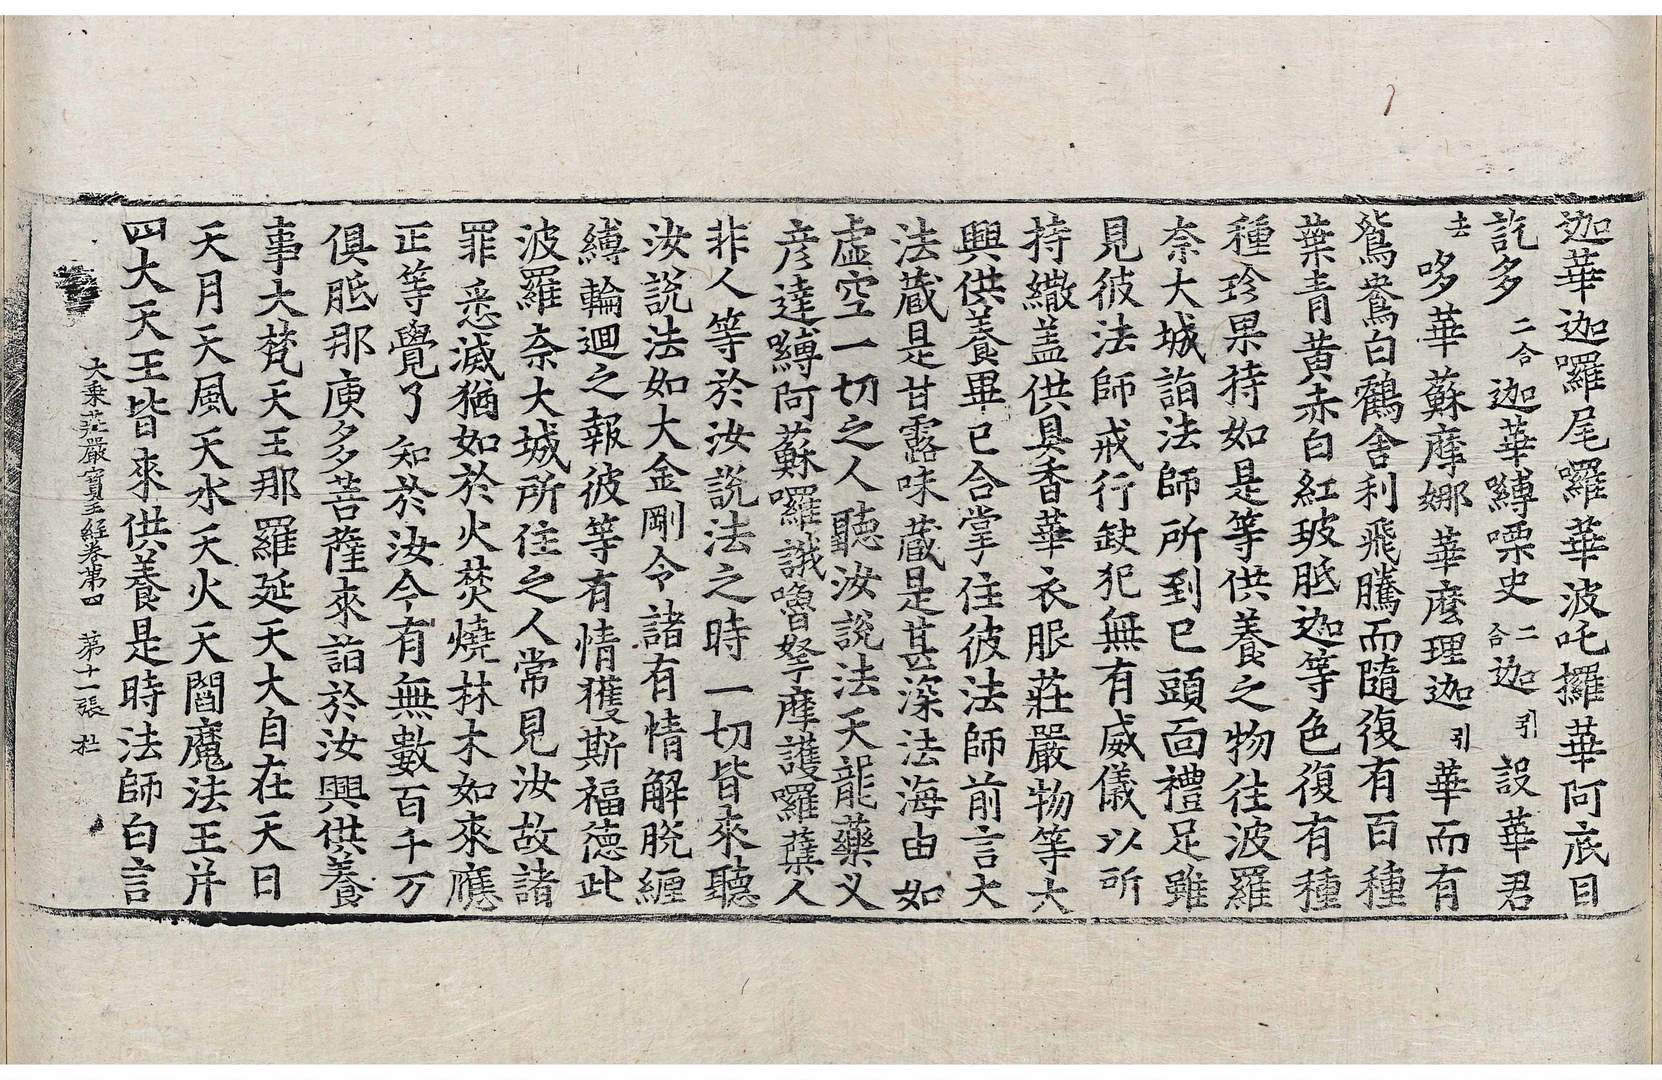 迦華迦囉尾囉華波吒攞華阿底目
訖多二合迦華嚩㗚史二合迦引設華君
去哆華蘇摩娜華麼理迦引華而有
鴛鴦白鶴舍利飛騰而隨復有百種
葉青黃赤白紅玻胝迦等色復有種
種珍果持如是等供養之物往波羅
柰大城詣法師所到已頭面禮足雖
見彼法師戒行缺犯無有威儀以所
持繖盖供具香華衣服莊嚴物等大
興供養畢已合掌住彼法師前言大
法蔵是甘露味蔵是甚深法海由如
虛空一切之人聽汝說法天龍藥叉
彥達嚩阿蘇囉誐嚕拏摩護囉蘖人
非人等於汝說法之時一切皆來聽
汝說法如大金剛令諸有情解脫纏
縛輪迴之報彼等有情獲斯福德此
波羅柰大城所住之人常見汝故諸
罪悉滅猶如於火焚燒林木如來應
正等覺了知於汝今有無數百千万
俱胝那庾多多菩薩來詣於汝興供養
事大梵天王那羅延天大自在天日
天月天風天水天火天閻魔法王并
四大天王皆來供養是時法師白言
大乘莊嚴寶王經卷第四 第十一張 杜